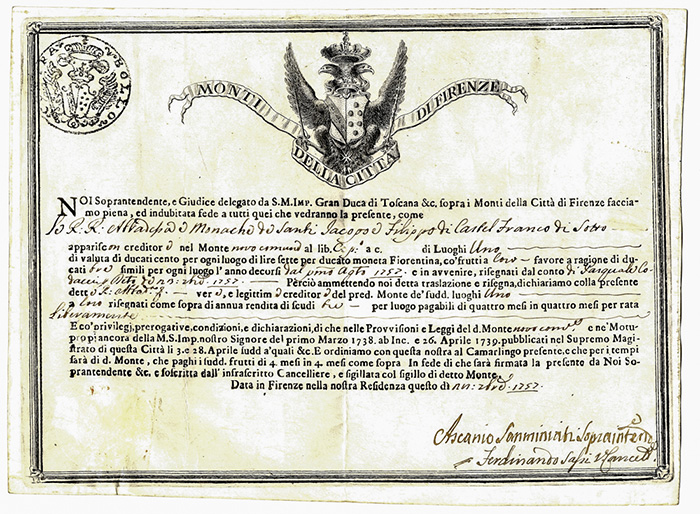 MONTI
DI FIRENZE
DELLA CITTÀ
NOI Soprantendente, e Giudice delegato da S.M.IMP. Gran Duca di Toscana &c. sopra i Monti della Città di Firenze faccia-
mo piena, ed indubitata fede a tutti quei che vedranno la presente, come
R.R: Abbadessa e Monache de Santi Jacopo e Filippo di Castel Franco di Sotto
apparisc creditor nel Monte al lib. a c. di Luoghi Uno
di valuta di ducati cento per ogni luogo di lire sette per ducato moneta Fiorentina, co' frutti a favore a ragione di du-
cati tre simili per ogni luogo l'anno decorsi dal Agto 1757. e in avvenire, risegnati dal conto di Pasquale Co-
Perciò ammettendo noi detta traslazione e risegna, dichiariamo colla presente
ver e legittim creditor del pred. Monte de' sudd. luoghi Uno
a risegnati come sopra di annua rendita di scudi tre per luogo pagabili di quattro mesi in quattro mesi per rata
liberamente
E co' privilegj, prerogative, condizioni, e dichiarazioni, di che nelle Provvisioni e Leggi del d. Monte e ne' Motu-
proprj ancora della M.S. Imp. nostro Signore del primo Marzo 1738. ab Inc. e 26. Aprile 1739. pubblicati nel Supremo Magi-
strato di questa Città li 3. e 28. Aprile sudd. a' quali &c. E ordiniamo con questa nostra al Camarlingo presente, e che per i tempi
sarà di d. Monte, che paghi i sudd. frutti di 4. mesi in 4. mesi come sopra In fede di che sarà firmata la presente da Noi So-
prantendente &c. e soscritta dall' infrascritto Cancelliere, e sigillata col sigillo di detto Monte.
Data in Firenze nella nostra Residenza questo dì 1757.
Ascanio Sanminiati Sopraintend
Ferdinando Cancell